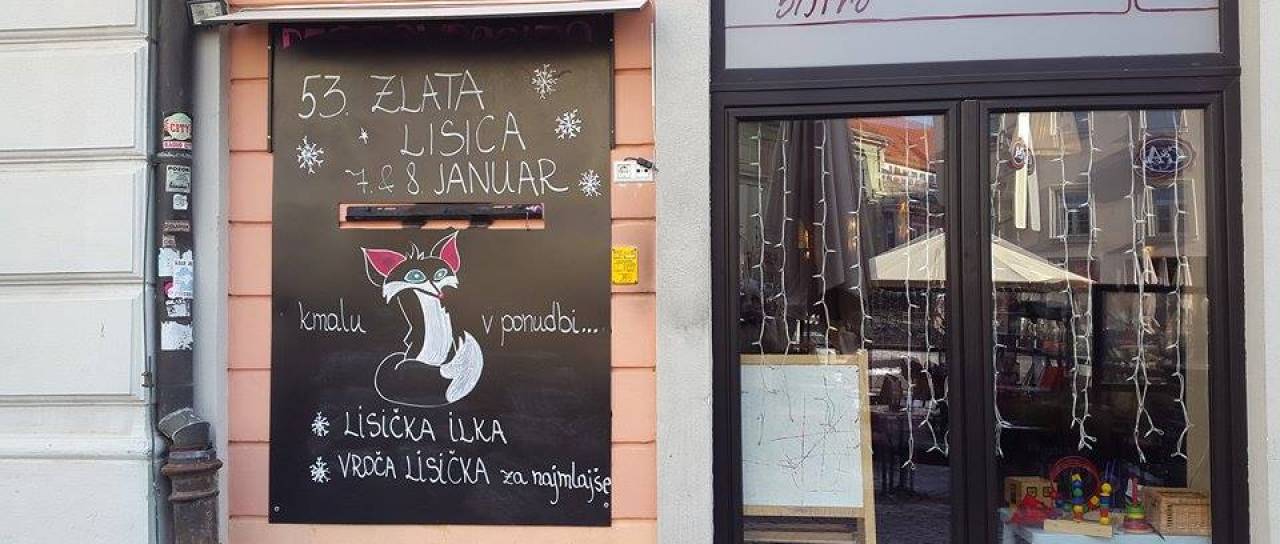 BISTRO
53. ZLATA
LISICA
7. & 8 JANUAR
kmalu v ponudbi...
LISIČKA ILKA
VROČA LISIČKA za najmlajše
CITY
RADIO